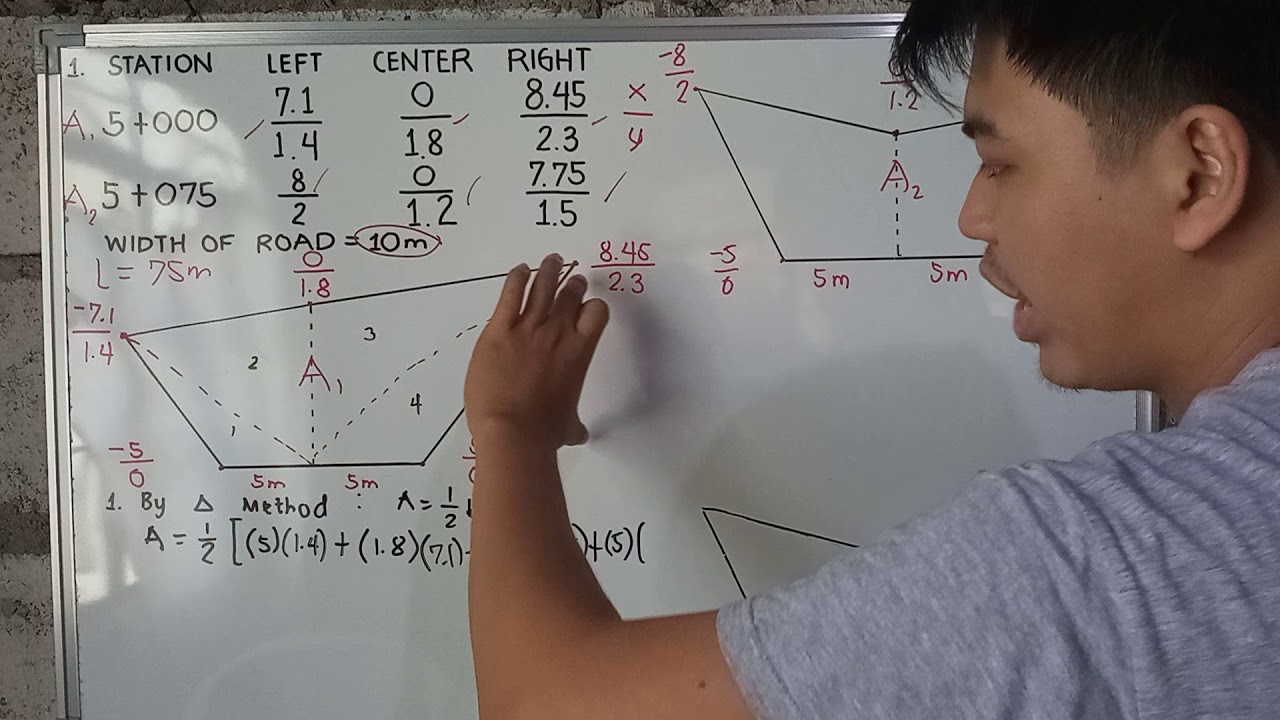 1. STATION LEFT CENTER RIGHT
A1 5+000 7.1/1.4 0/1.8 8.45/2.3 x/y
A2 5+075 8/2 0/1.2 7.75/1.5
WIDTH OF ROAD = 10m
L = 75m
0/1.8
-7.1/1.4
8.45/2.3
2
3
A1
1
4
-5/0
5m 5m
-8/2
1.2
A2
-5/0
5m 5m
1. By Δ Method : A = 1/2
A = 1/2 [(5)(1.4) + (1.8)(7.1) )+(5)(